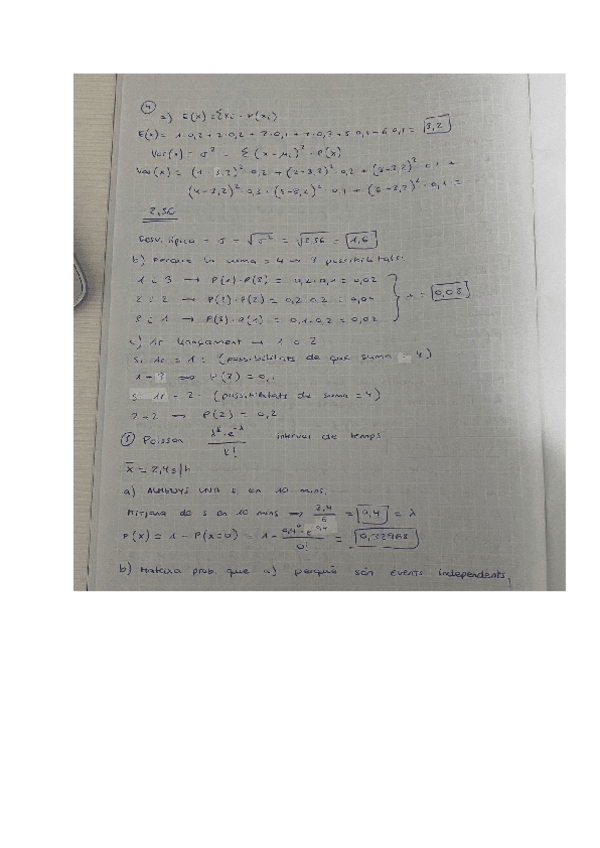 4
a) E(x) = Σxi · P(xi)
E(x) = 1·0,2 + 2·0,2 + 3·0,1 + 4·0,3 + 5·0,1 + 6·0,1 = 3,2
Var(x) = σ² = Σ (x-μi)² · P(x)
Var(x) = (1-3,2)²·0,2 + (2-3,2)²·0,2 + (3-3,2)²·0,1 +
(4-3,2)²·0,3 + (5-3,2)²·0,1 + (6-3,2)²·0,1 =
2,56
Desv. típica = σ = √σ² = √2,56 = 1,6
b) Perquè la suma = 4 → 3 possibilitats:
1 i 3 → P(1)·P(3) = 0,2·0,1 = 0,02
2 i 2 → P(2)·P(2) = 0,2·0,2 = 0,04
3 i 1 → P(3)·P(1) = 0,1·0,2 = 0,02
+ = 0,08
c) 1r llançament → 1 o 2
Si 1r = 1 : (possibilitats de que suma = 4)
1-3 ⇒ P(3) = 0,1
Si 1r = 2 : (possibilitats de suma = 4)
2-2 → P(2) = 0,2
5 Poisson λᵏ·e^-λ / k! interval de temps
x̄ = 2,4 s/h
a) ALMENYS UNA s en 10 mins.
Mitjana de s en 10 mins → 2,4/6 = 0,4 = λ
P(x) = 1 - P(x=0) = 1 - 0,4⁰·e^-0,4 / 0! = 0,32968
b) Mateixa prob. que a) perquè són events independents